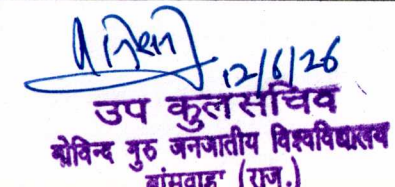 12/6/26
उप कुलसचिव
गोविन्द गुरु जनजातीय विश्वविद्यालय
बांसवाड़ा (राज.)